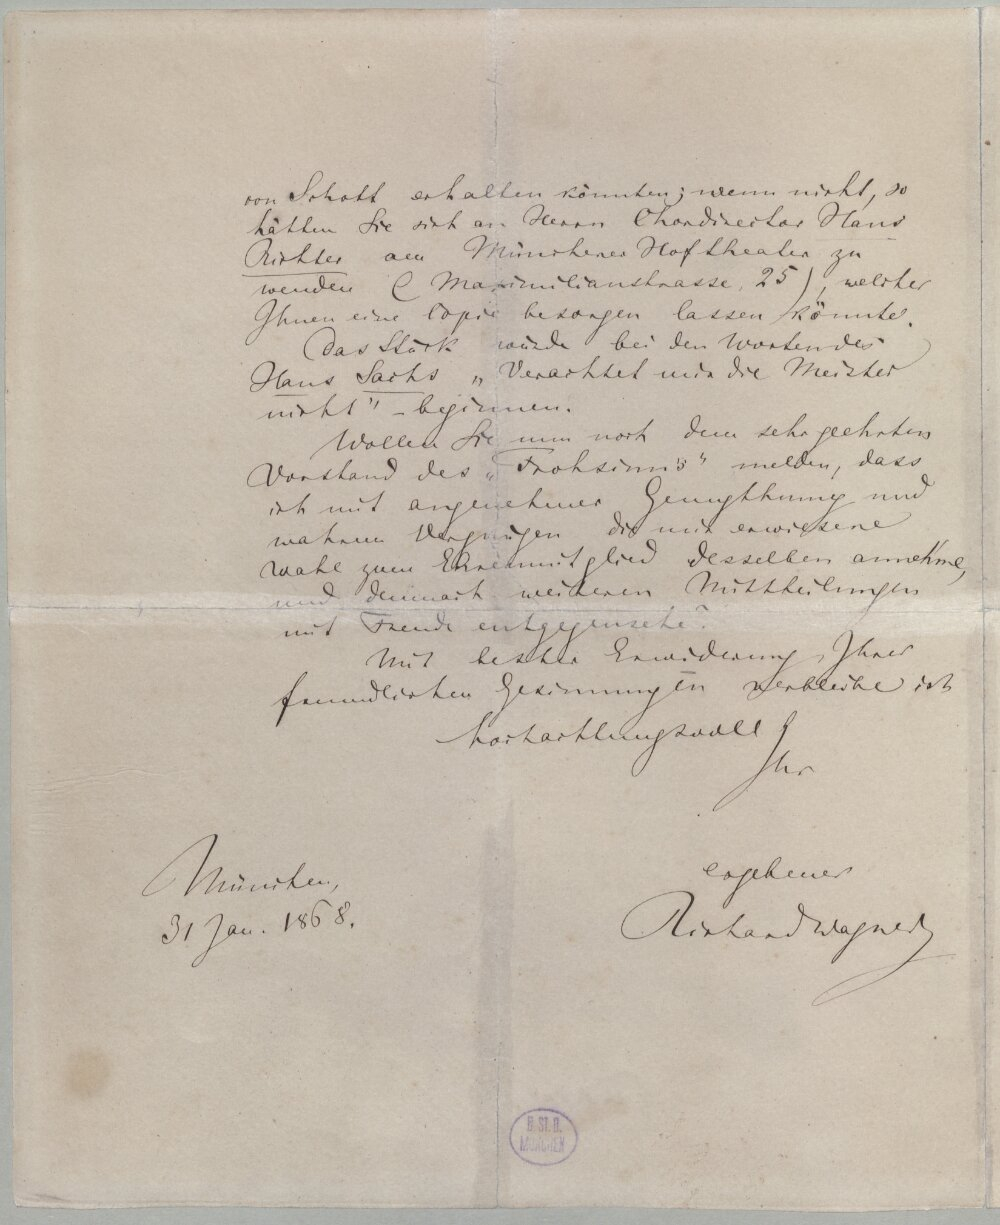 von Schott erhalten könnten; wenn nicht, so
hätten Sie sich an Herrn Chordirector Hans
Richter am Münchener Hoftheater zu
wenden (Maximilianstrasse, 25), welcher
Ihnen eine Copie besorgen lassen könnte.
Das Stück würde bei den Worten des
Hans Sachs „Verachtet mir die Meister
nicht" – beginnen.
Wollen Sie nun noch dem sehr geehrten
Vorstand des „Frohsinns" melden, dass
ich mit angenehmer Genugthuung und
wahrem Vergnügen die mir erwiesene
Wahl zum Ehrenmitglied desselben annehme,
und demnach weiteren Mittheilungen
mit Freude entgegensehe.
Mit bester Erwiderung Ihrer
freundlichen Gesinnungen verbleibe ich
hochachtungsvoll
Ihr
ergebener
Richard Wagner
München,
31 Jan. 1868.
B. ST. B.
MÜNCHEN